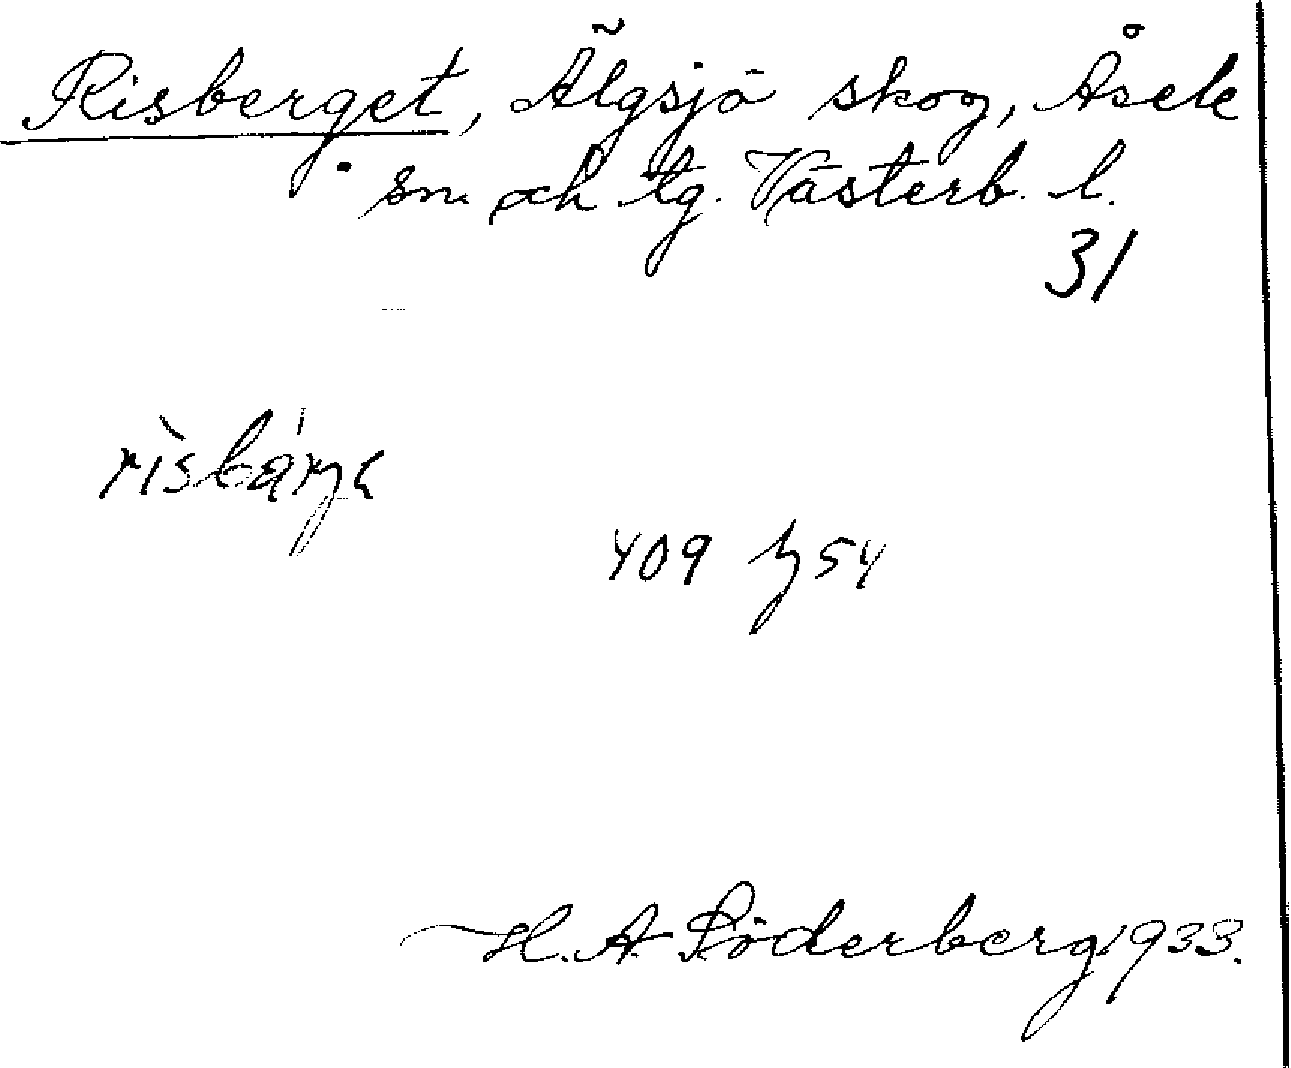 Risberget, Älgsjö skog, Åsele
sn. och tg. Västerb. l.
31
409 h 54
H. A. Söderberg 1933.